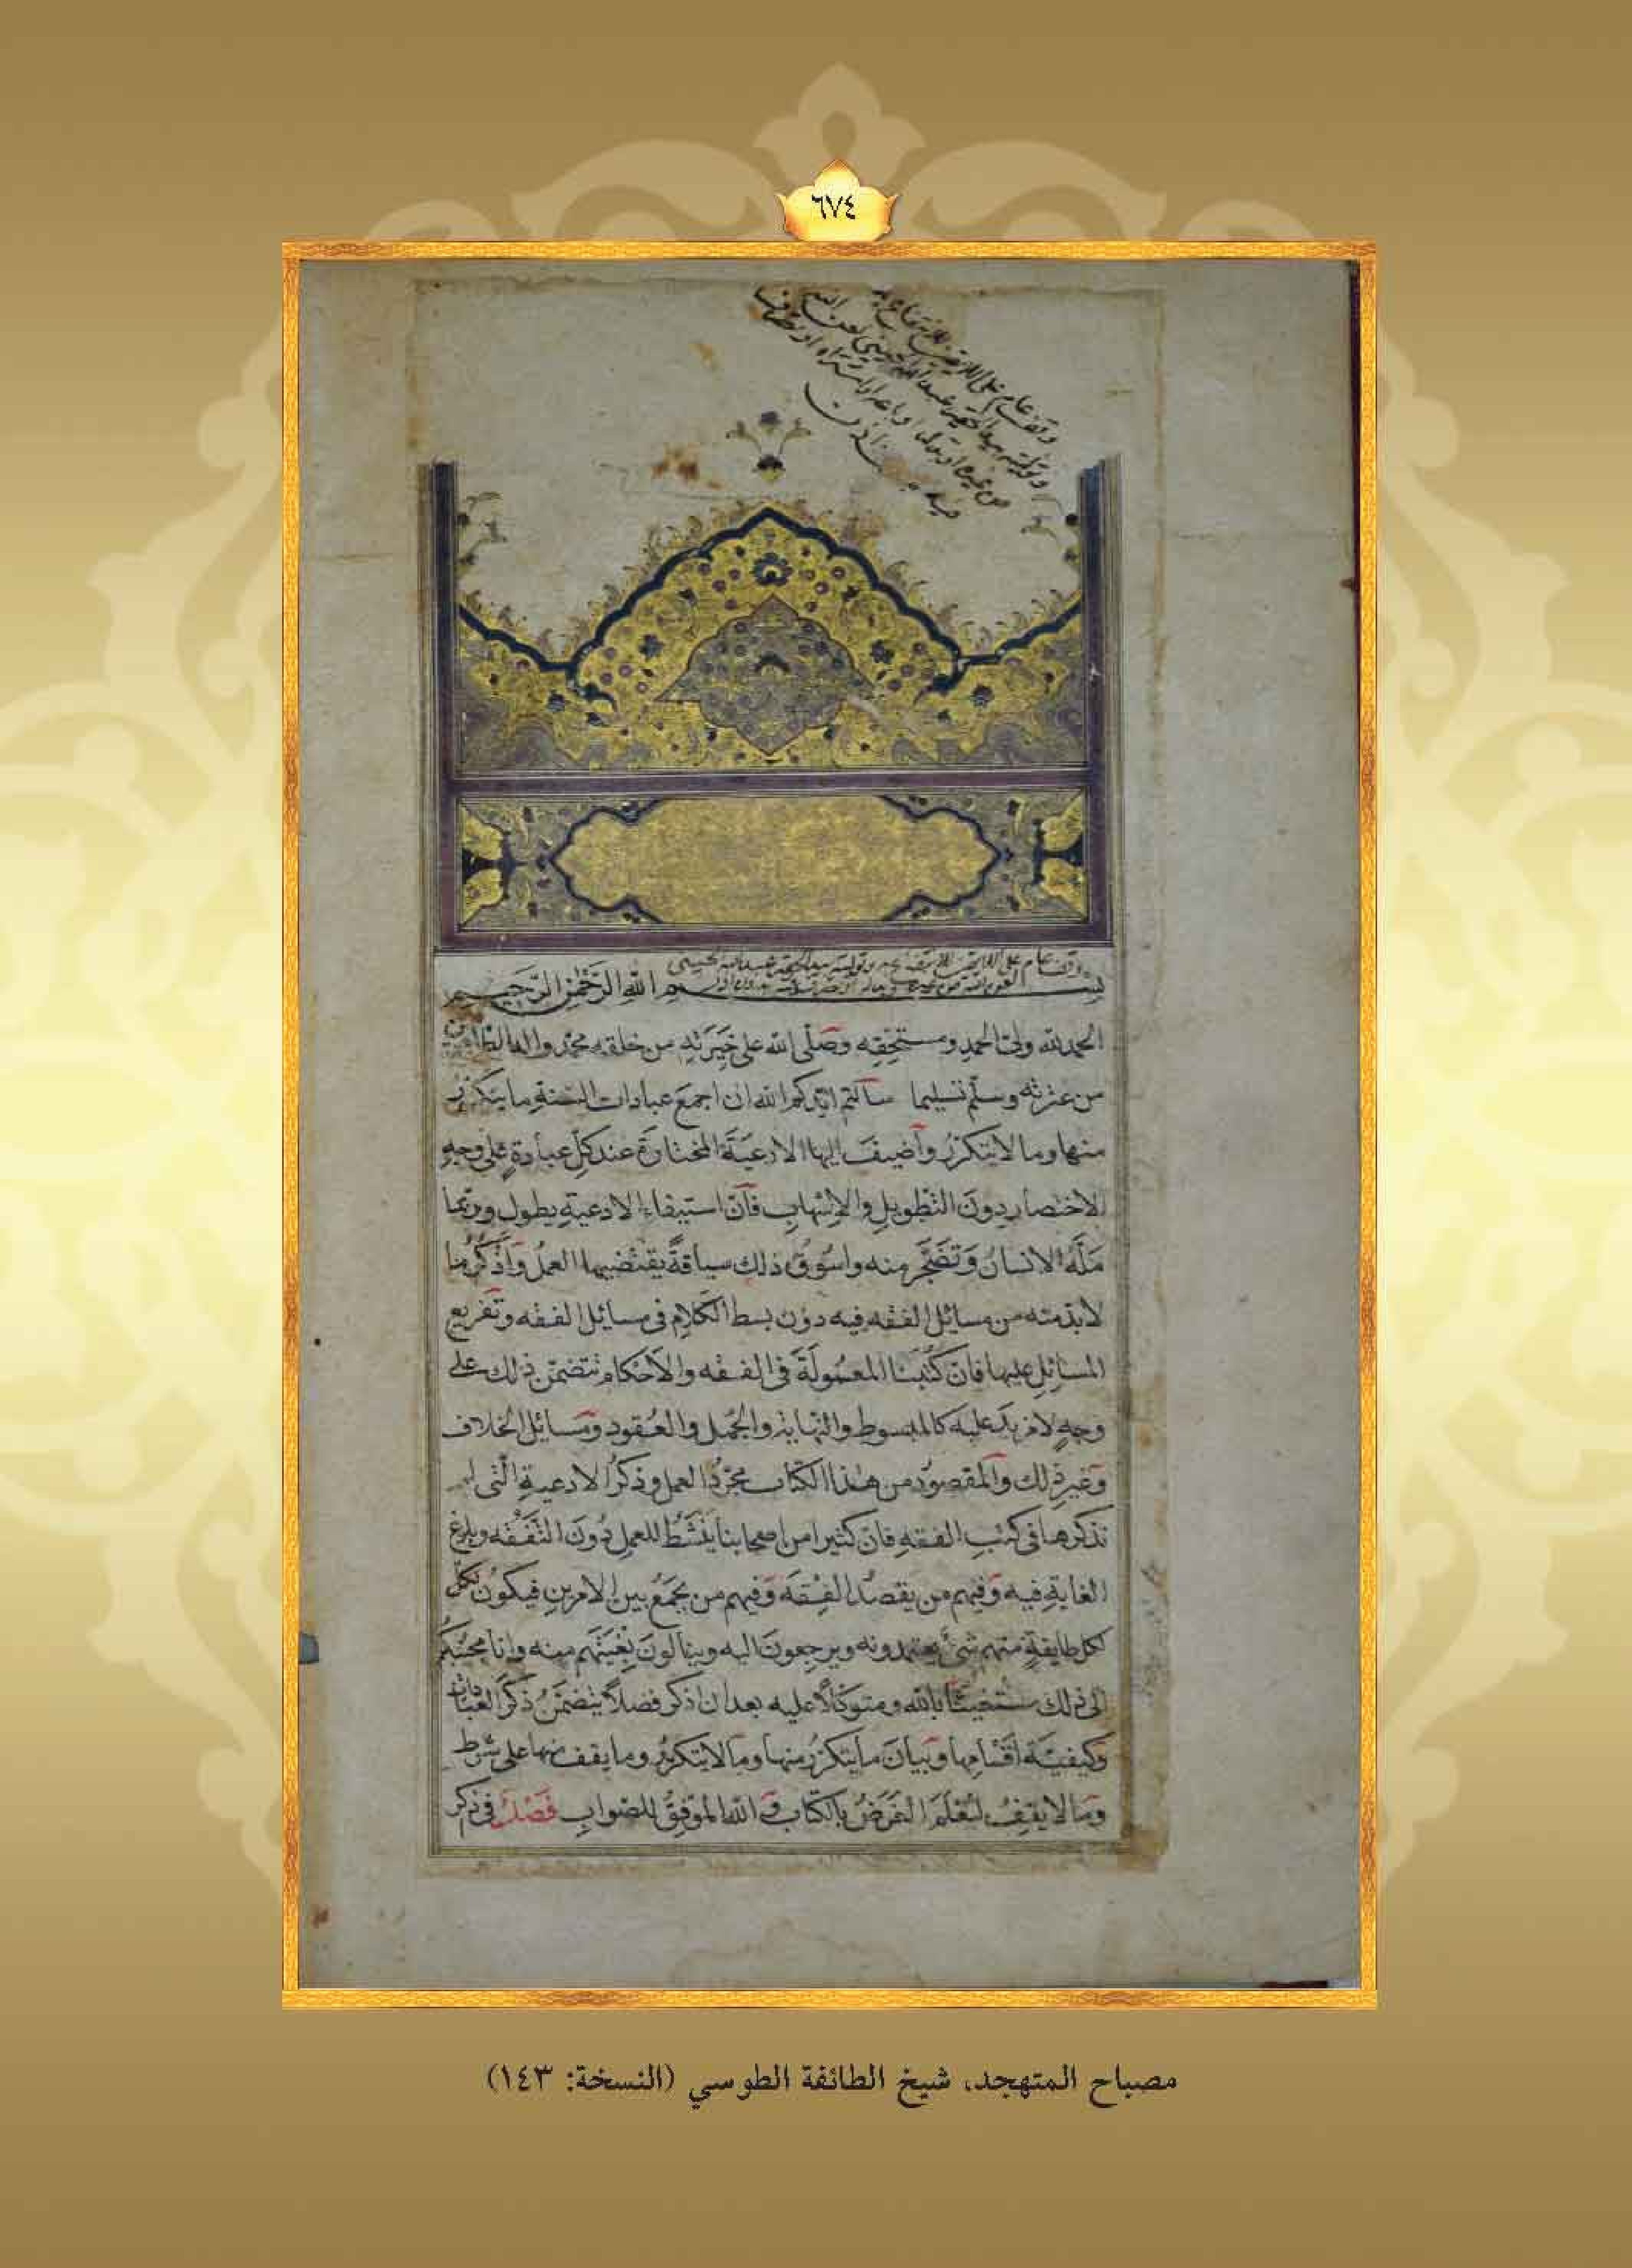 ٦٧٤
وقف عام على اللائقين للانتفاع به
بسم الله الرحمن الرحيم
الحمد لله ولي الحمد ومستحقه وصَلّى الله على خِيَرَتِهِ من خلقه محمد واله الطاهرين
من عترته وسلّم تسليما سألتم ايّدكم الله ان اجمعَ عبادات السنة ما يتكرّر
منها وما لا يتكرّرُ وأضيفَ إليها الادعيَةَ المختارَةَ عند كلّ عبادةٍ على وجهِ
الاختصار دونَ التّطويلِ والاسْهابِ فانّ استيفاء الادعيةِ يطول وربّما
مَلَّهُ الانسانُ وَتَضَجَّرَ منه واسُوقُ ذلك سياقةً يقتضيها العملُ وَاَذْكُرُ ما
لا بدّ منه من مسائل الفقه فيه دون بسط الكَلامِ فى مسايل الفقه وتَفريع
المسائلِ عليها فانّ كُتُبَنا المعمُولَةَ فى الفقه والاَحْكام تتضمّن ذلك على
وجهٍ لا مزيدَ عليه كالمبسوط والنّهايةِ والجُمل والعُقود ومَسائل الخلاف
وَغيرِ ذلك والمقصودُ من هذا الكتاب مجرّدُ العمل وذكرُ الادعيةِ الّتى لم
نذكرها فى كتبِ الفقهِ فانّ كثيرا من اصحابنا يَنْشَطُ للعملِ دُونَ التّفَقُّه وبلوغِ
الغايةِ فيه وَفيهم من يقصدُ الفِقهَ وَفيهم من يجمَعُ بين الامرينِ فيكونُ لكلّ
لكل طايفةٍ منهم شئٌ يعتمدونه ويرجعونَ اليه وينالونَ بُغيَتَهم منه وانا مجيبُكم
الى ذلك مستغيثًا بالله ومتوكّلاً عليه بعد ان اذكر فصلاً يتضمّنُ ذكرَ العبادات
وكيفيّة اَقْسامِها وبَيانَ ما يتكرّرُ منها وما لا يتكرّرُ وما يقف منها على شرط
وَما لا يقفُ لتعْلَمَ الغَرضُ بالكتاب وَاللهُ الموَفّقُ للصّوابِ فَصْلٌ فى ذكر
مصباح المتهجد، شيخ الطائفة الطوسي (النسخة: ١٤٣)